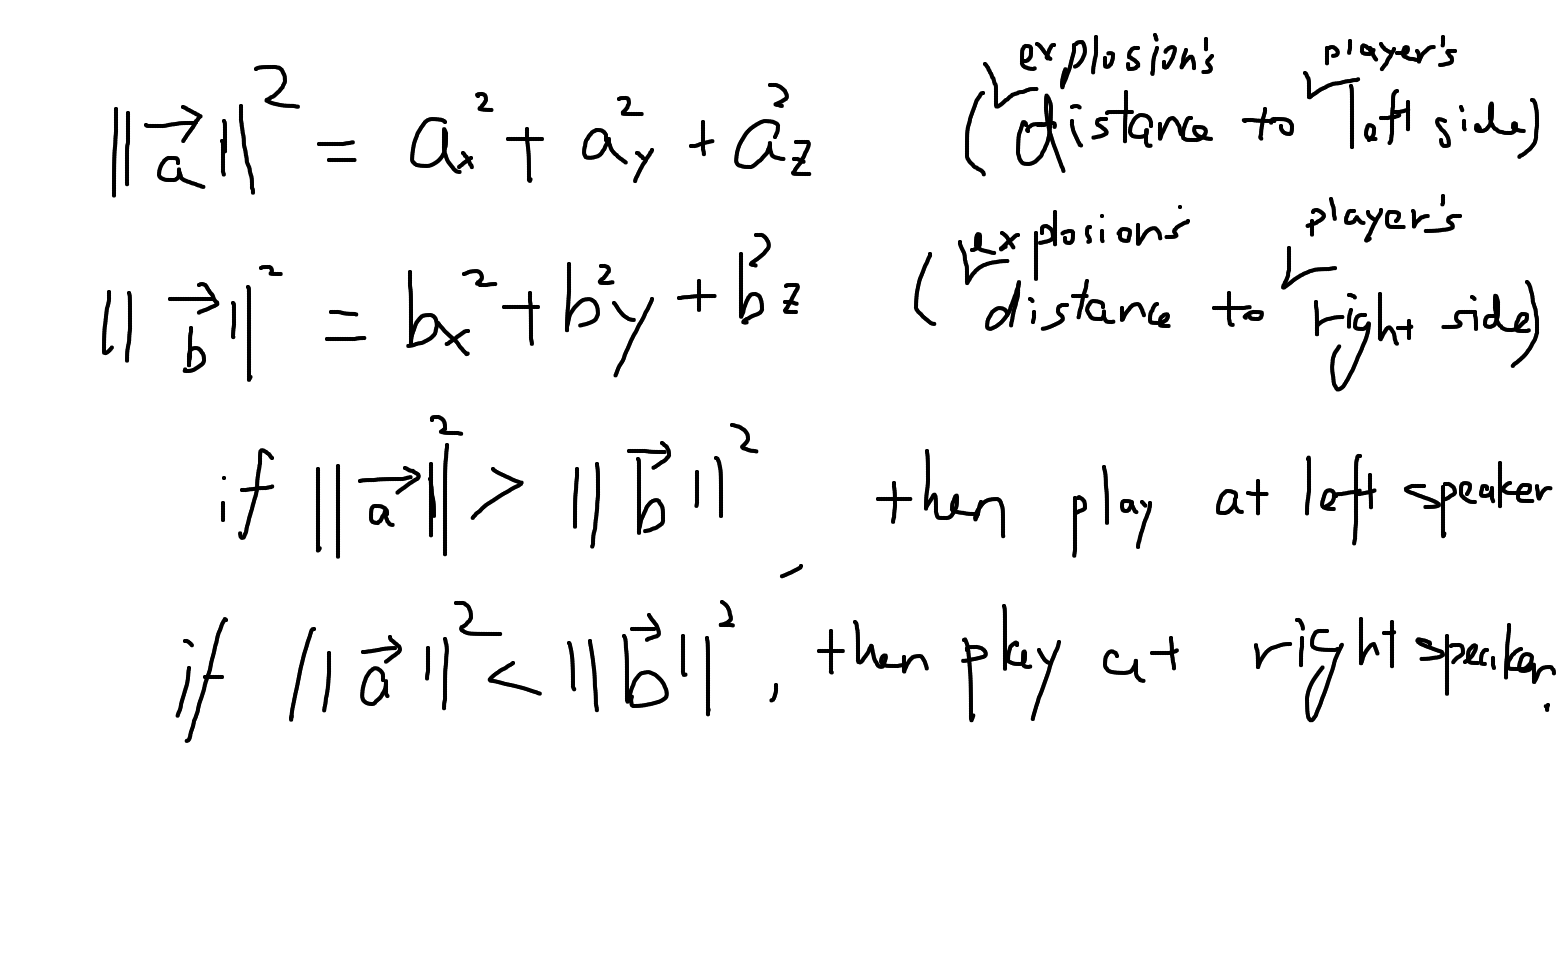 ‖a⃗‖² = aₓ² + a²y + a²z (explosion's distance to player's left side)
‖b⃗‖² = bx² + b²y + b²z (explosions distance to player's right side)
if ‖a⃗‖² > ‖b⃗‖², then play at left speaker
if ‖a⃗‖² < ‖b⃗‖², then play at right speaker.